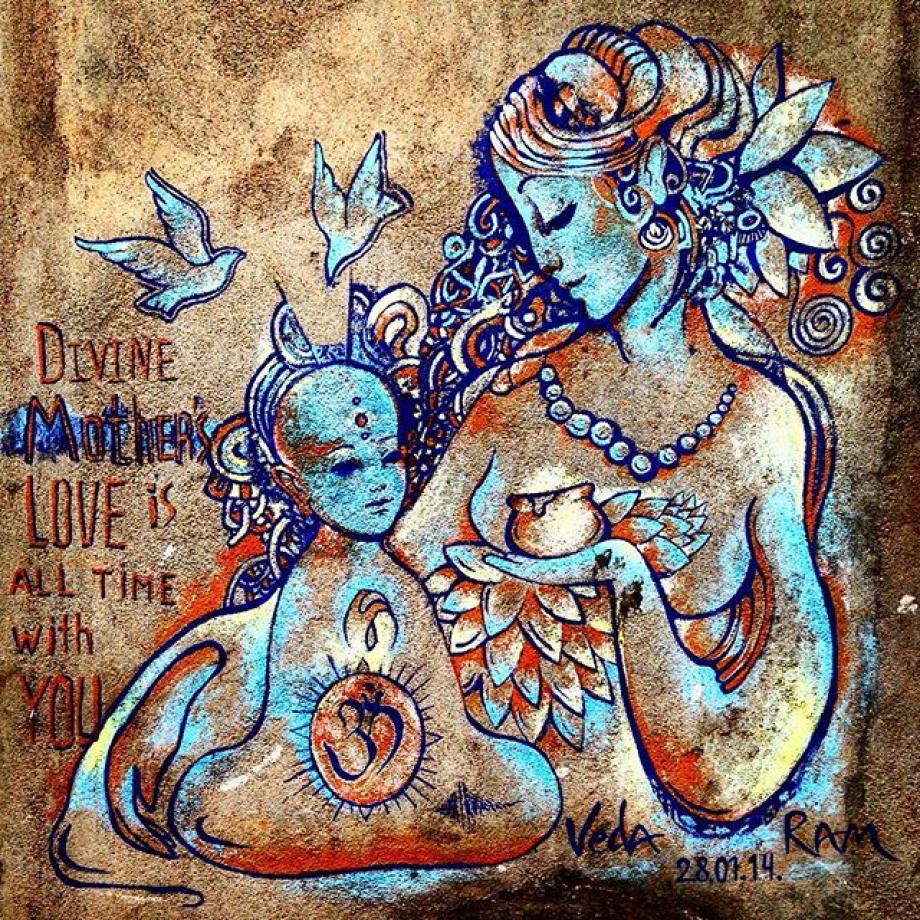 DIVINE
MOTHER'S
LOVE is
ALL TIME
with
YOU
ॐ
Veda RAM
28.01.14.